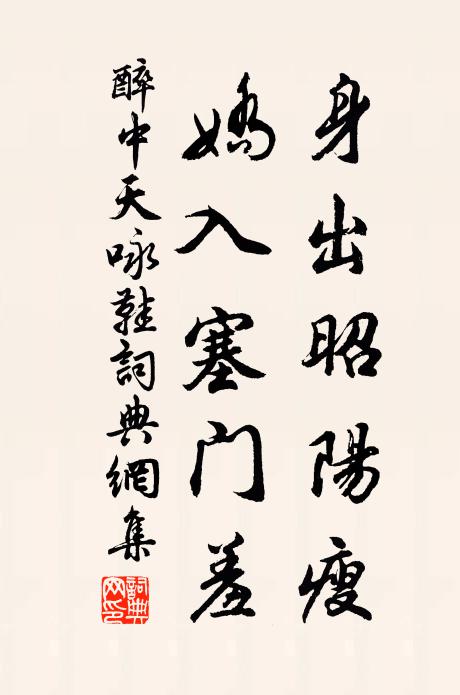 身出昭陽瘦
嬌入塞門羞
醉中天咏鞋詞典網集
詞典
网印